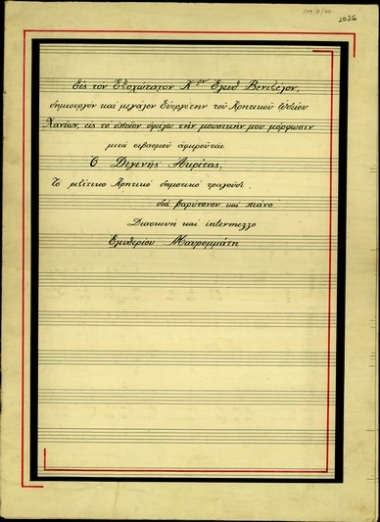 1026
Εἰς τὸν Ἐξοχώτατον Κον Ἐλευθ Βενιζέλον,
δημιουργὸν καὶ μεγάλον Εὐεργέτην τοῦ Κρητικοῦ Ὠδείου
Χανίων, εἰς τὸ ὁποῖον ὀφείλω τὴν μουσικήν μου μόρφωσιν
μετὰ σεβασμοῦ ἀφιεροῦται
Ὁ Διγενής Ἀκρίτας,
Τὸ ριζίτικο Κρητικὸ δημοτικὸ τραγοῦδι.
διὰ βαρύτονον καὶ πιάνο
Διασκευή καὶ intermezzo
Ἐλευθερίου Μαυρομμάτη